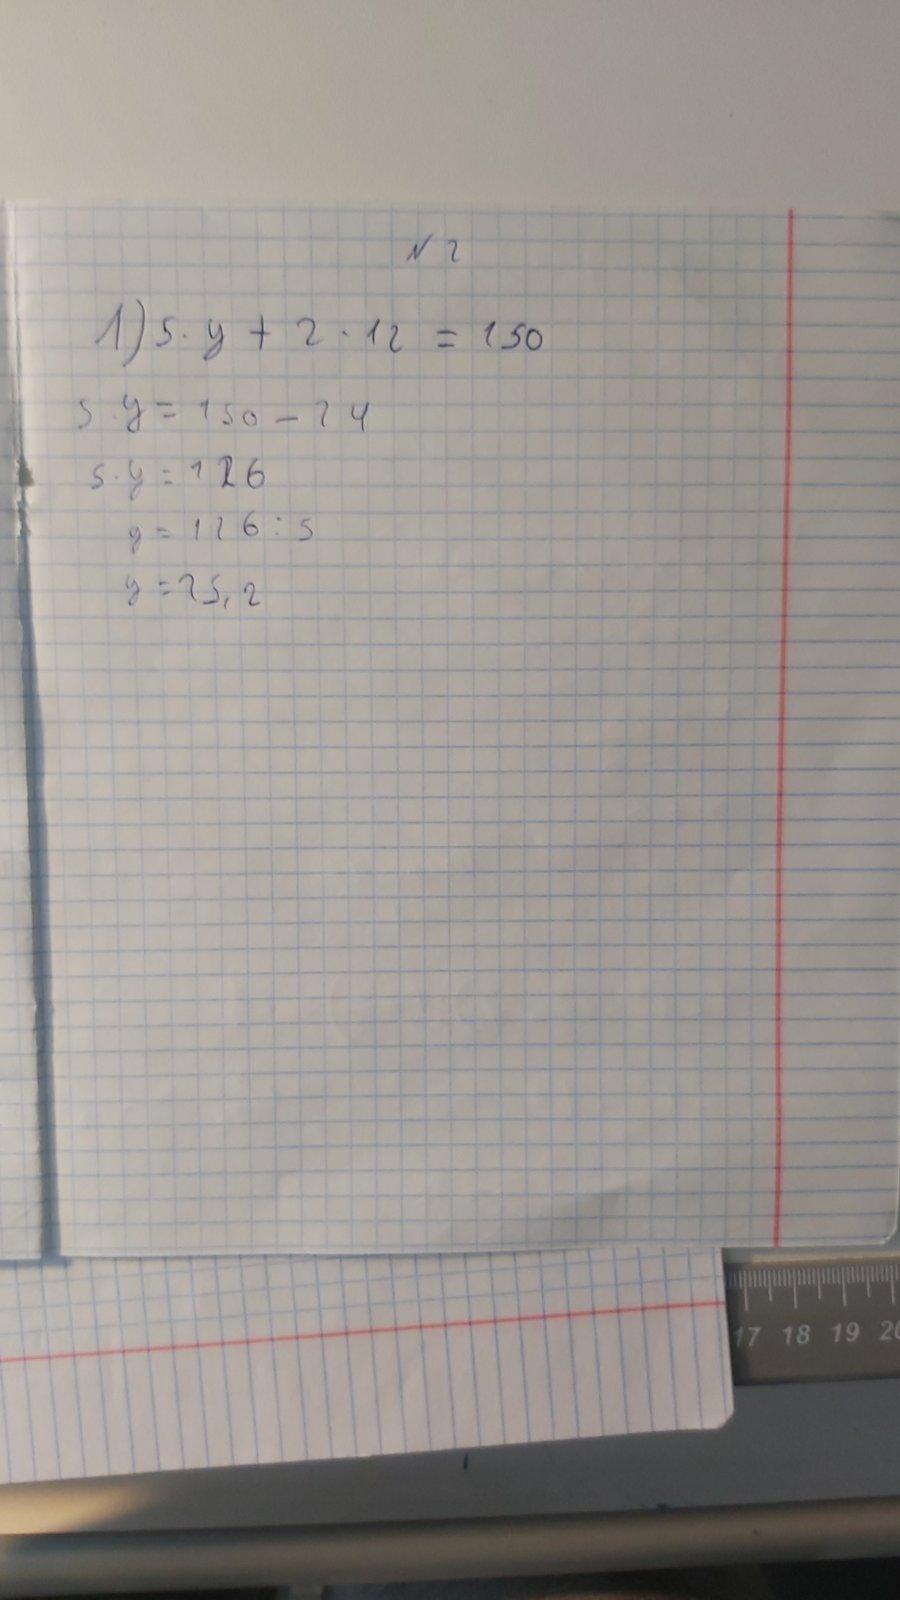 № 2
1) 5 · y + 2 · 12 = 150
5 · y = 150 - 24
5 · y = 126
y = 126 : 5
y = 25,2
17 18 19 20